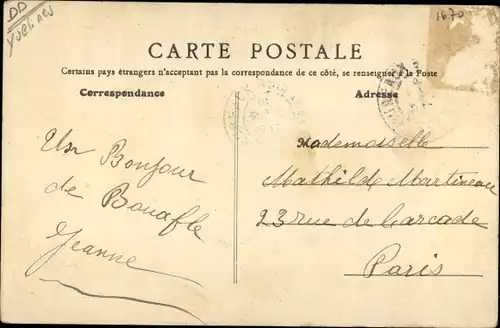 DD
Yvelines
1670
CARTE POSTALE
Certains pays étrangers n'acceptant pas la correspondance de ce côté, se renseigner à la Poste
Correspondance
Adresse
Un Bonjour
de Bouafle
Jeanne
Mademoiselle
Mathilde Martineau
23 rue de Larcade
Paris